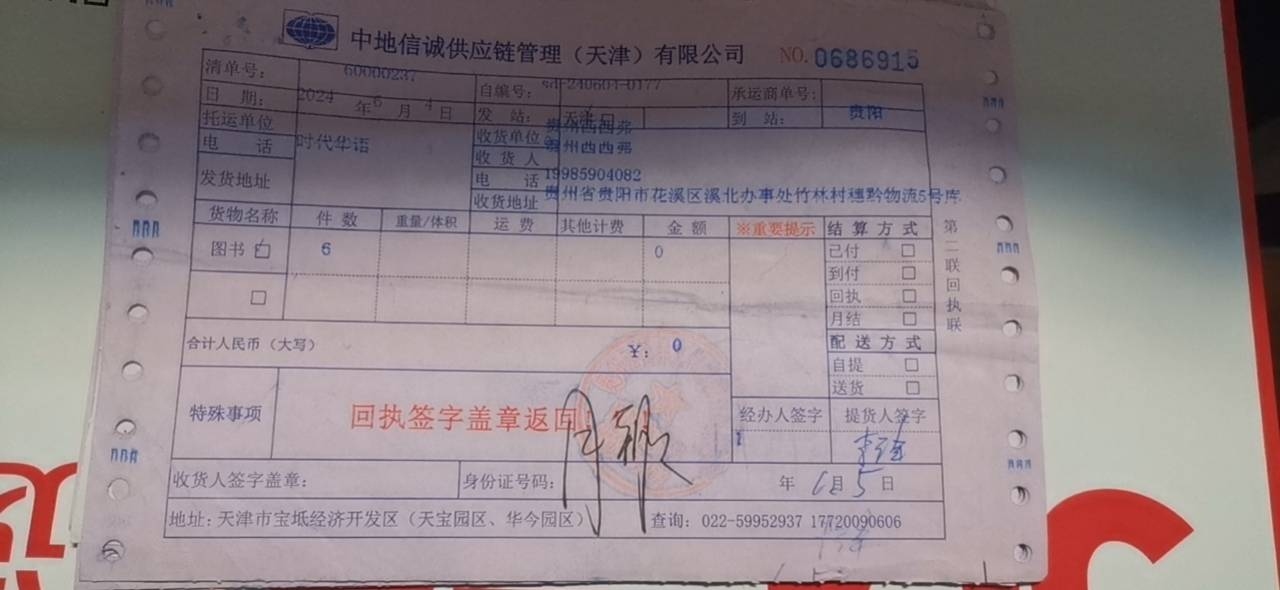 中地信诚供应链管理（天津）有限公司 NO. 0686915
清单号： 60000237 自编号： sd-240604-0177 承运商单号：
日 期： 2024 年 6 月 4 日 发 站： 天津 到 站： 贵阳
托运单位 时代华语 收货单位 贵州西西弗
电 话 收 货 人 贵州西西弗
发货地址 电 话 19985904082
收货地址 贵州省贵阳市花溪区溪北办事处竹林村穗黔物流5号库
货物名称 件 数 重量/体积 运 费 其他计费 金 额 ※重要提示 结 算 方 式
图书 6 0 已付
到付
回执
月结
合计人民币（大写） ¥： 0 配 送 方 式
自提
送货
特殊事项 回执签字盖章返回 经办人签字 提货人签字
收货人签字盖章： 身份证号码： 年 6月 5 日
地址：天津市宝坻经济开发区（天宝园区、华今园区） 查询：022-59952937 17720090606
第二联回执联